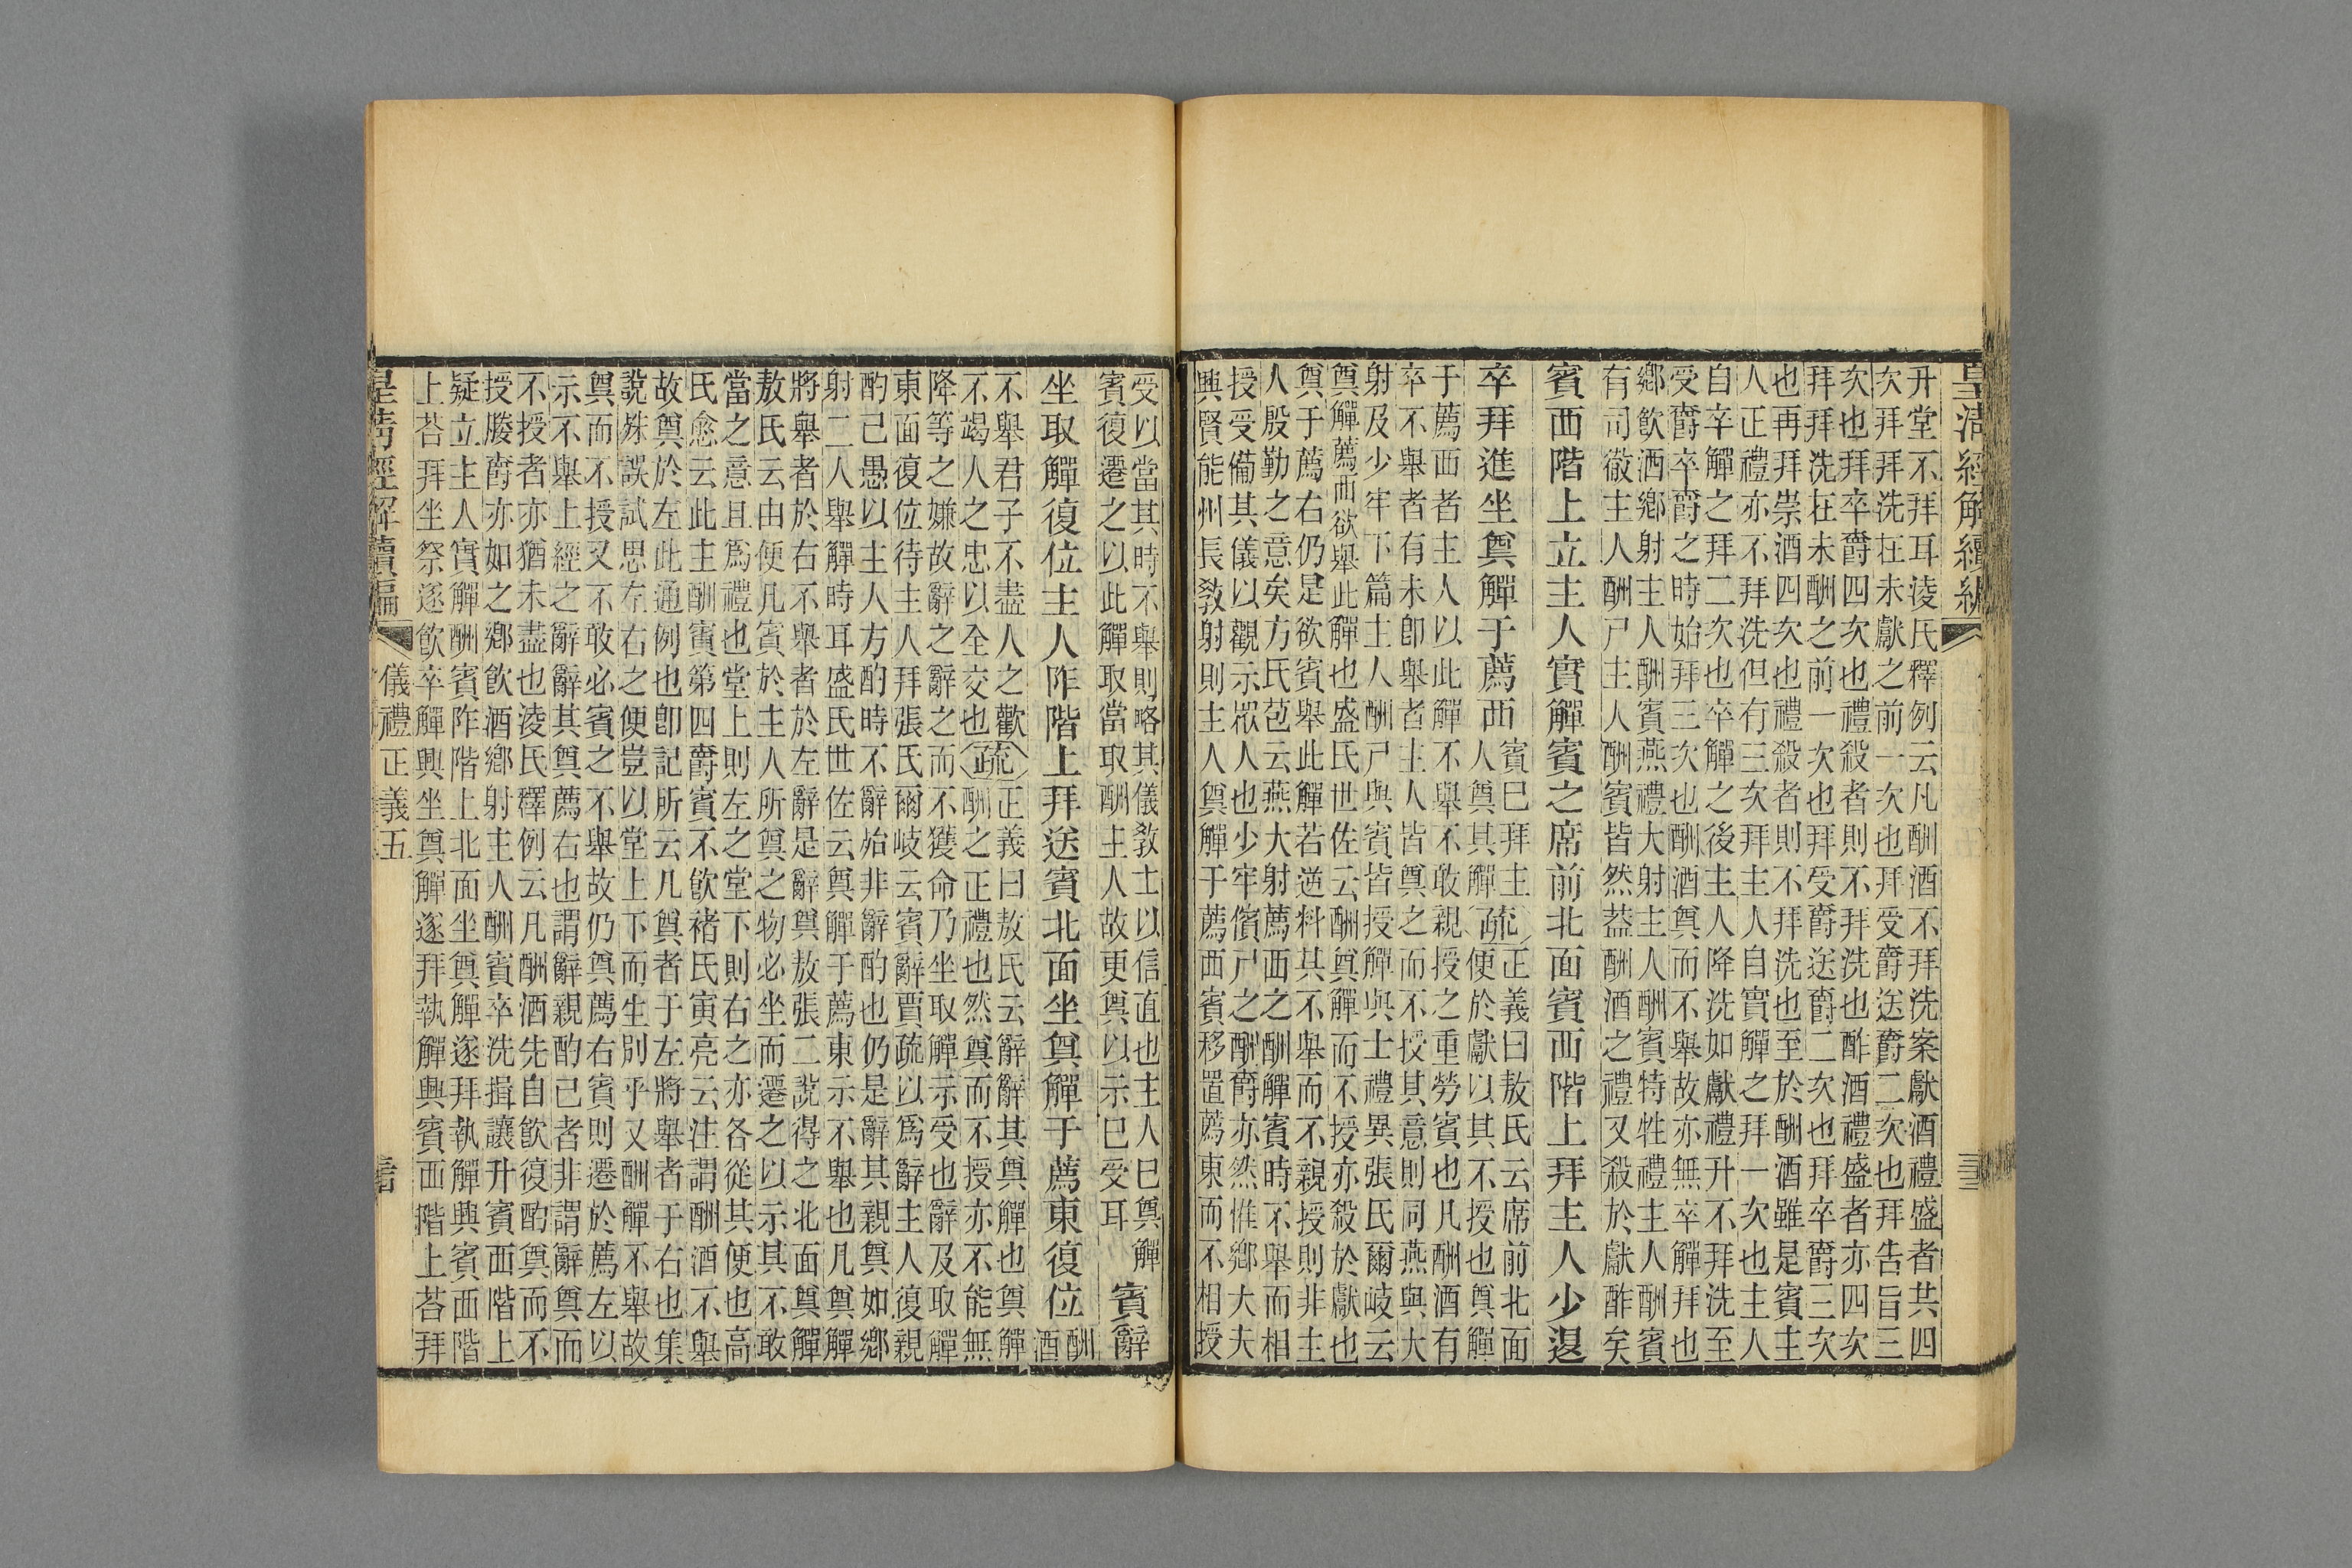 皇清經解續編
升堂不拜耳淩氏釋例云凡酬酒不拜洗案獻酒禮盛者共四
次拜拜洗在未獻之前一次也拜受爵送爵二次也拜告旨三
次也拜卒爵四次也禮殺者則不拜洗也酢酒禮盛者亦四次
拜拜洗在未酬之前一次也拜受爵送爵二次也拜卒爵三次
也再拜崇酒四次也禮殺者則不拜洗也至於酬酒雖是賓主
人正禮亦不拜洗但有三次拜主人自實觶之拜一次也主人
自卒觶之拜二次也卒觶之後主人降洗如獻禮升不拜洗至
受爵卒爵之時始拜三次也酬酒奠而不舉故亦無卒觶拜也
鄉飮酒鄉射主人酬賓燕禮大射主人酬賓特牲禮主人酬賓
有司徹主人酬尸主人酬賓皆然葢酬酒之禮又殺於獻酢矣
賓西階上立主人實觶賓之席前北面賓西階上拜主人少退
卒拜進坐奠觶于薦西
賓巳拜主
人奠其觶
疏
正義曰敖氏云席前北面
便於獻以其不授也奠觶
于薦西者主人以此觶不舉不敢親授之重勞賓也凡酬酒有
卒不舉者有未卽舉者主人皆奠之而不授其意則同燕與大
射及少牢下篇主人酬尸與賓皆授觶與士禮異張氏爾岐云
奠觶薦西欲舉此觶也盛氏世佐云酬奠觶而不授亦殺於獻也
奠于薦右仍是欲賓舉此觶若逆料其不舉而不親授則非主
人殷勤之意矣方氏苞云燕大射薦西之酬觶賓時不舉而相
授受備其儀以觀示眾人也少牢儐尸之酬爵亦然惟鄉大夫
興賢能州長敎射則主人奠觶于薦西賓移置薦東而不相授
受以當其時不舉則略其儀敎士以信直也主人巳奠觶
賓復遷之以此觶取當取酬主人故更奠以示巳受耳
賓辭
坐取觶復位主人阼階上拜送賓北面坐奠觶于薦東復位
酬
酒
不舉君子不盡人之歡
不竭人之忠以全交也
疏
正義曰敖氏云辭辭其奠觶也奠觶
酬之正禮也然奠而不授亦不能無
降等之嫌故辭之辭之而不獲命乃坐取觶示受也辭及取觶
東面復位待主人拜張氏爾岐云賓辭賈疏以爲辭主人復親
酌己愚以主人方酌時不辭始非辭酌也仍是辭其親奠如鄉
射二人舉觶時耳盛氏世佐云奠觶于薦東示不舉也凡奠觶
將舉者於右不舉者於左辭是辭奠敖張二說得之北面奠觶
敖氏云由便凡賓於主人所奠之物必坐而遷之以示其不敢
當之意且爲禮也堂上則左之堂下則右之亦各從其便也高
氏愈云此主酬賓第四爵賓不飮褚氏寅亮云注謂酬酒不舉
故奠於左此通例也卽記所云凡奠者于左將舉者于右也集
說殊誤試思左右之便豈以堂上下而生別乎又酬觶不舉故
奠而不授又不敢必賓之不舉故仍奠薦右賓則遷於薦左以
示不舉上經之辭辭其奠薦右也謂辭親酌己者非謂辭奠而
不授者亦猶未盡也淩氏釋例云凡酬酒先自飮復酌奠而不
授媵爵亦如之鄉飮酒鄉射主人酬賓卒洗揖讓升賓西階上
疑立主人實觶酬賓阼階上北面坐奠觶遂拜執觶興賓西階
上荅拜坐祭遂飮卒觶興坐奠觶遂拜執觶興賓西階上荅拜
皇清經解續編
儀禮正義五